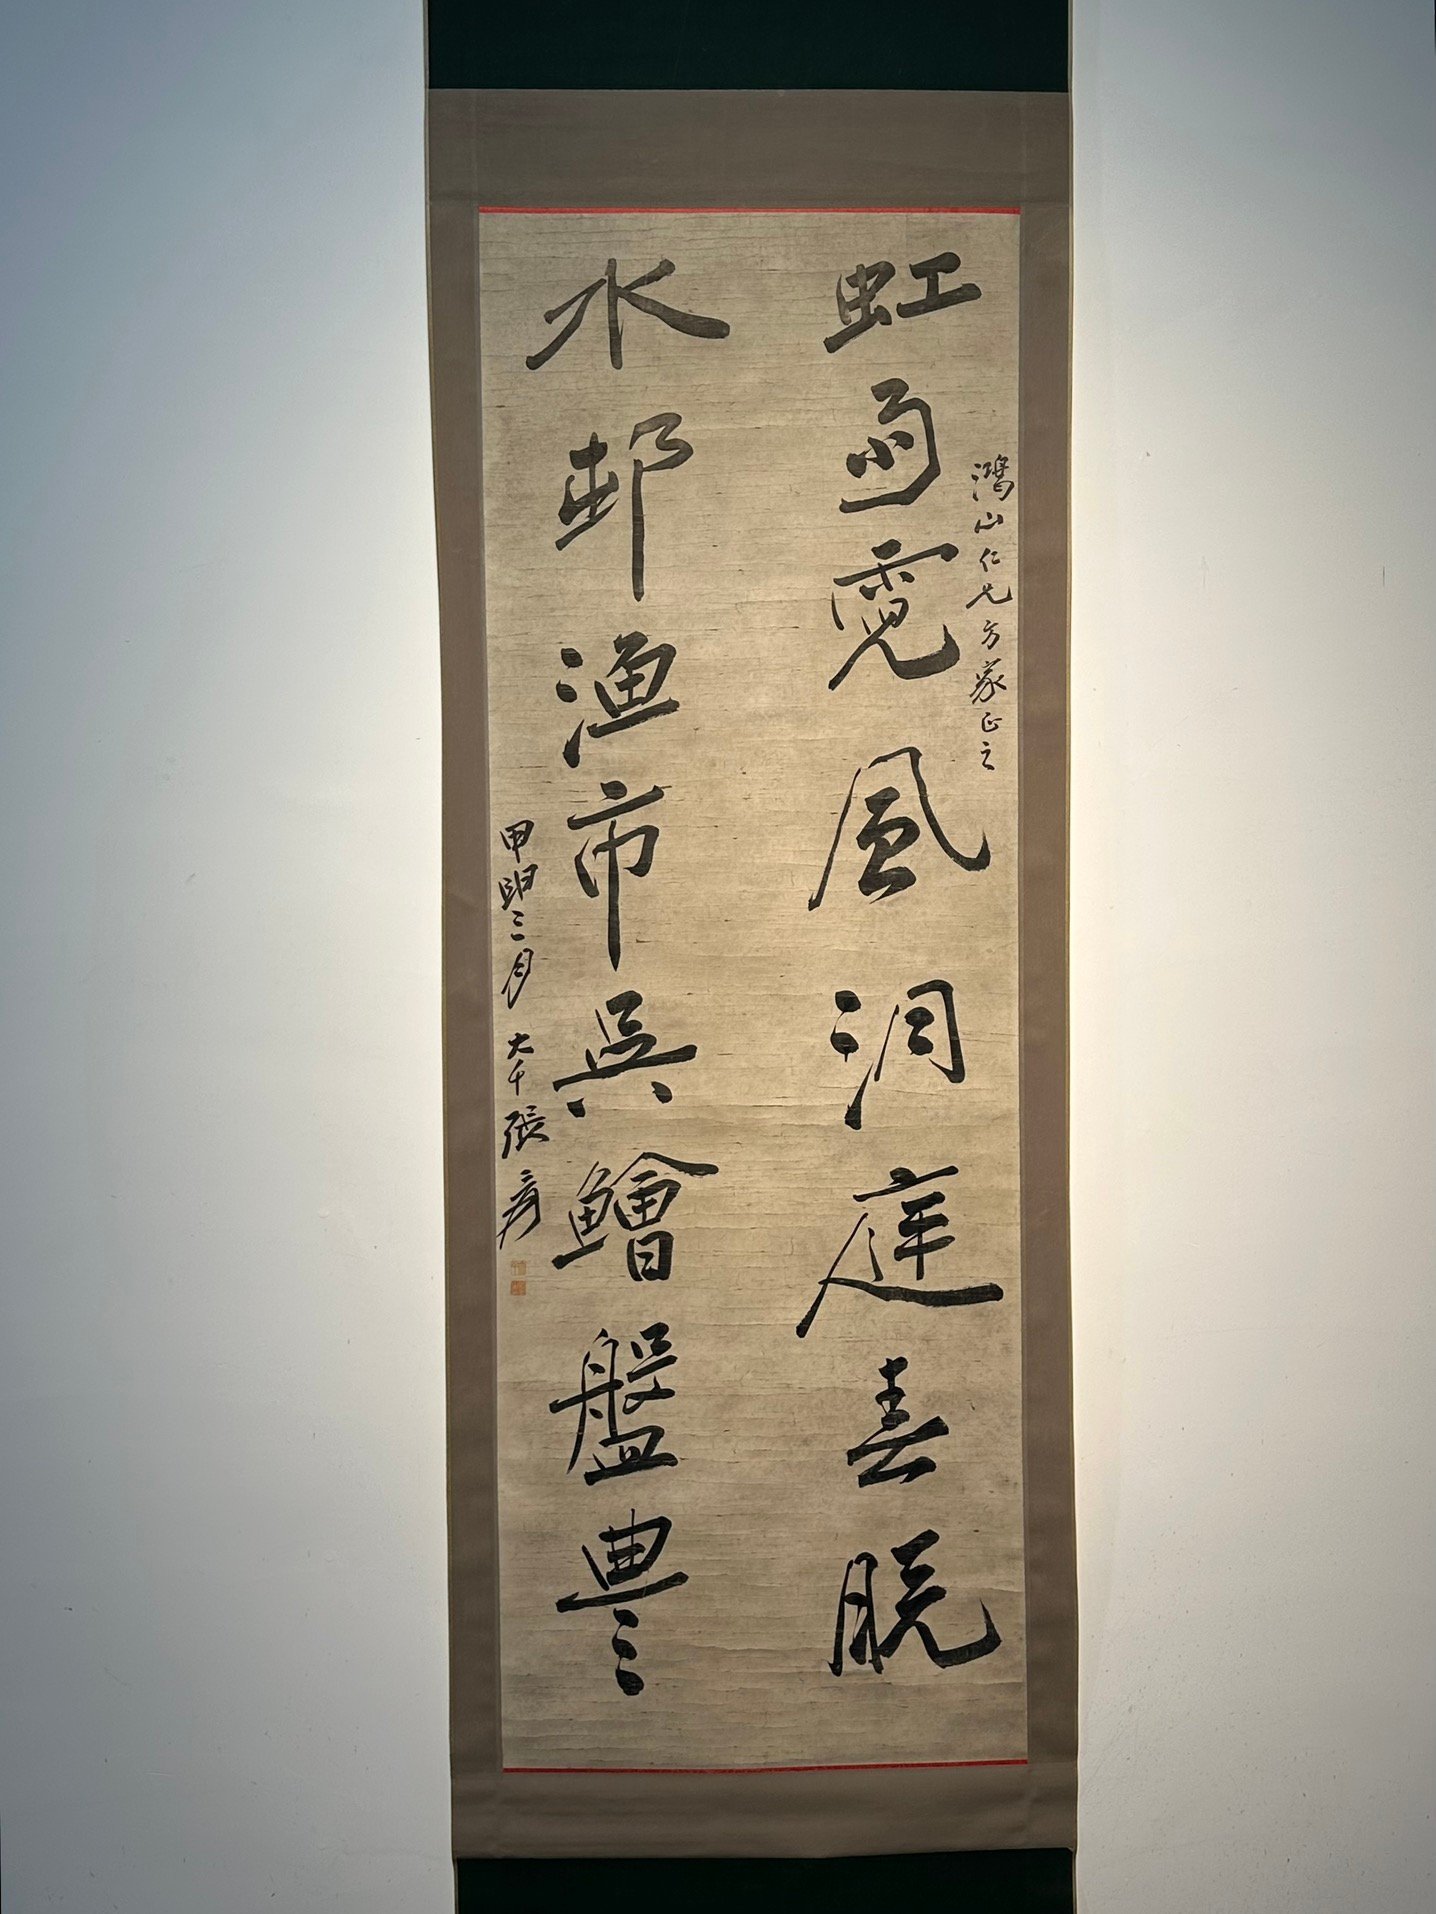 虹雨霓風洞庭春脫
鴻山仁兄方家正之
水邨漁市吳鱠盤豊
甲申三月 大千張爰